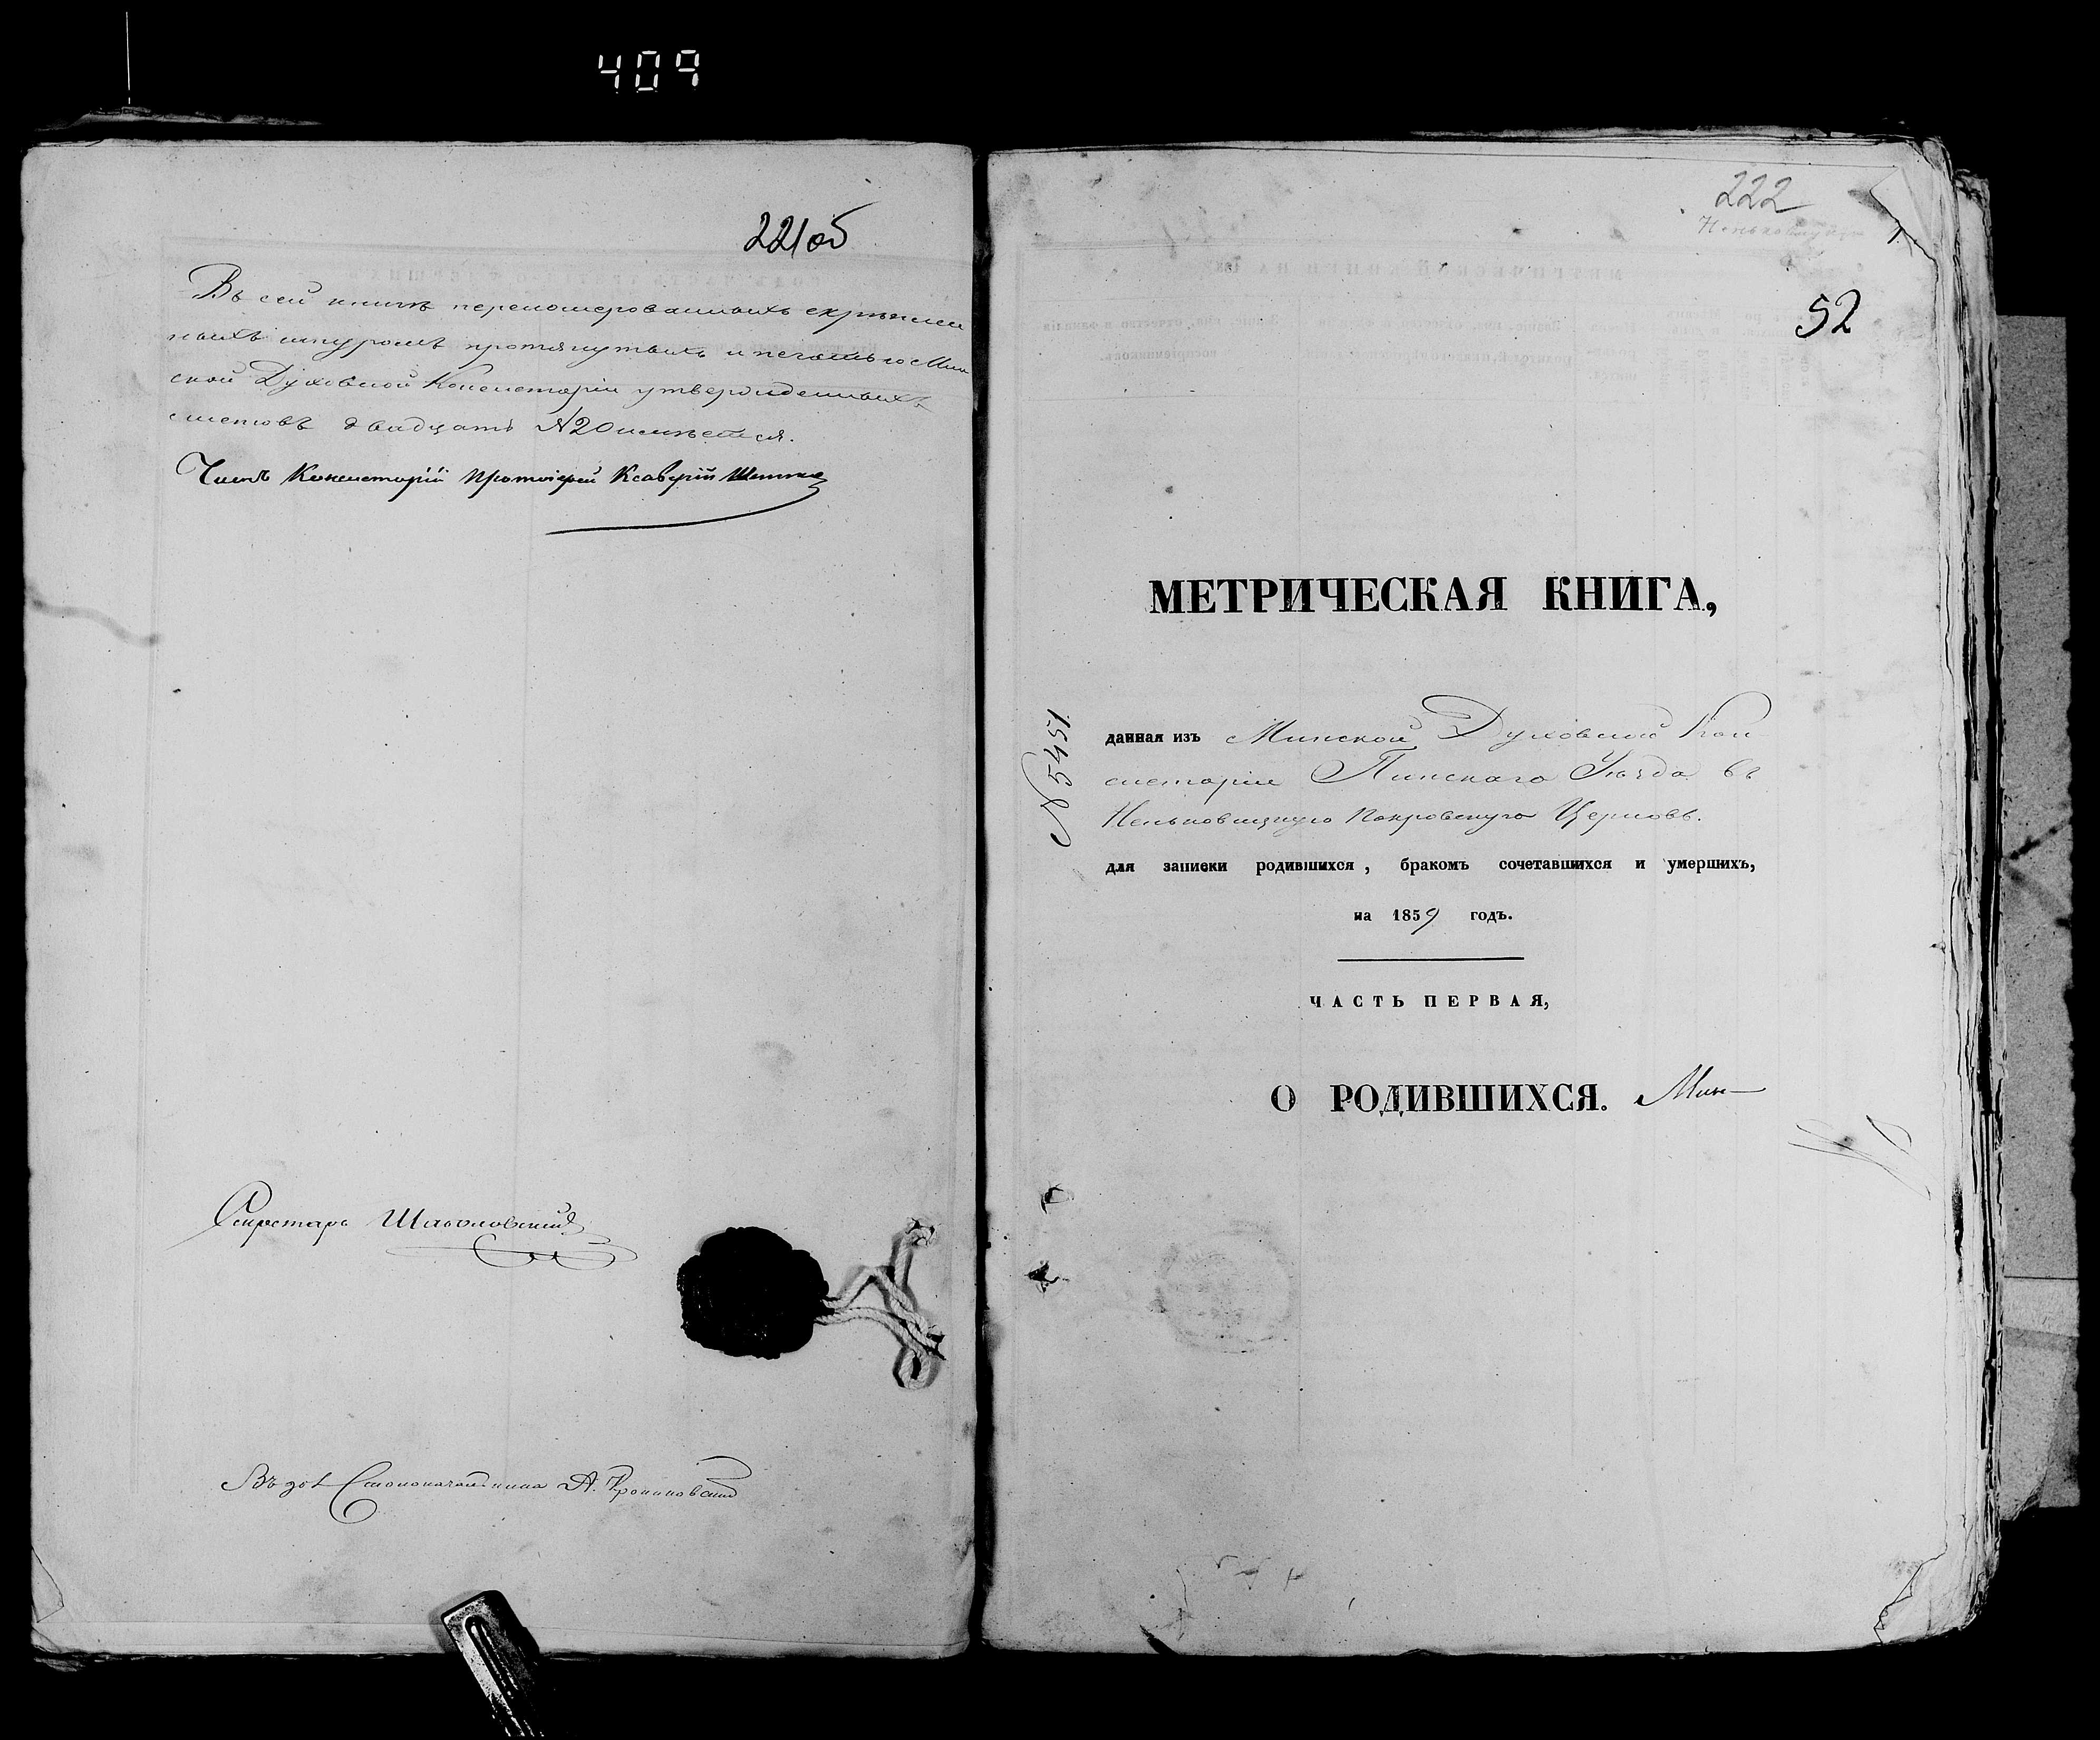 409
221об
Въ сей книгѣ перономерованныхъ скрѣплен
ныхъ шнуромъ протянутыхъ и печатью Мин
ской Духовной Консисторіи утвержденныхъ
листовъ двадцать №20 имѣется.
Членъ Консисторіи Протоіерей Ксаверій
Секретарь
Столоначальника А.
222
52
МЕТРИЧЕСКАЯ КНИГА,
№ 5451
данная изъ Минской Духовной Кон
систоріи Пинскаго Уѣзда въ
Неньковицкую Покровскую Церковь.
для записки родившихся, бракомъ сочетавшихся и умершихъ,
на 1859 годъ.
ЧАСТЬ ПЕРВАЯ,
О РОДИВШИХСЯ. Мин